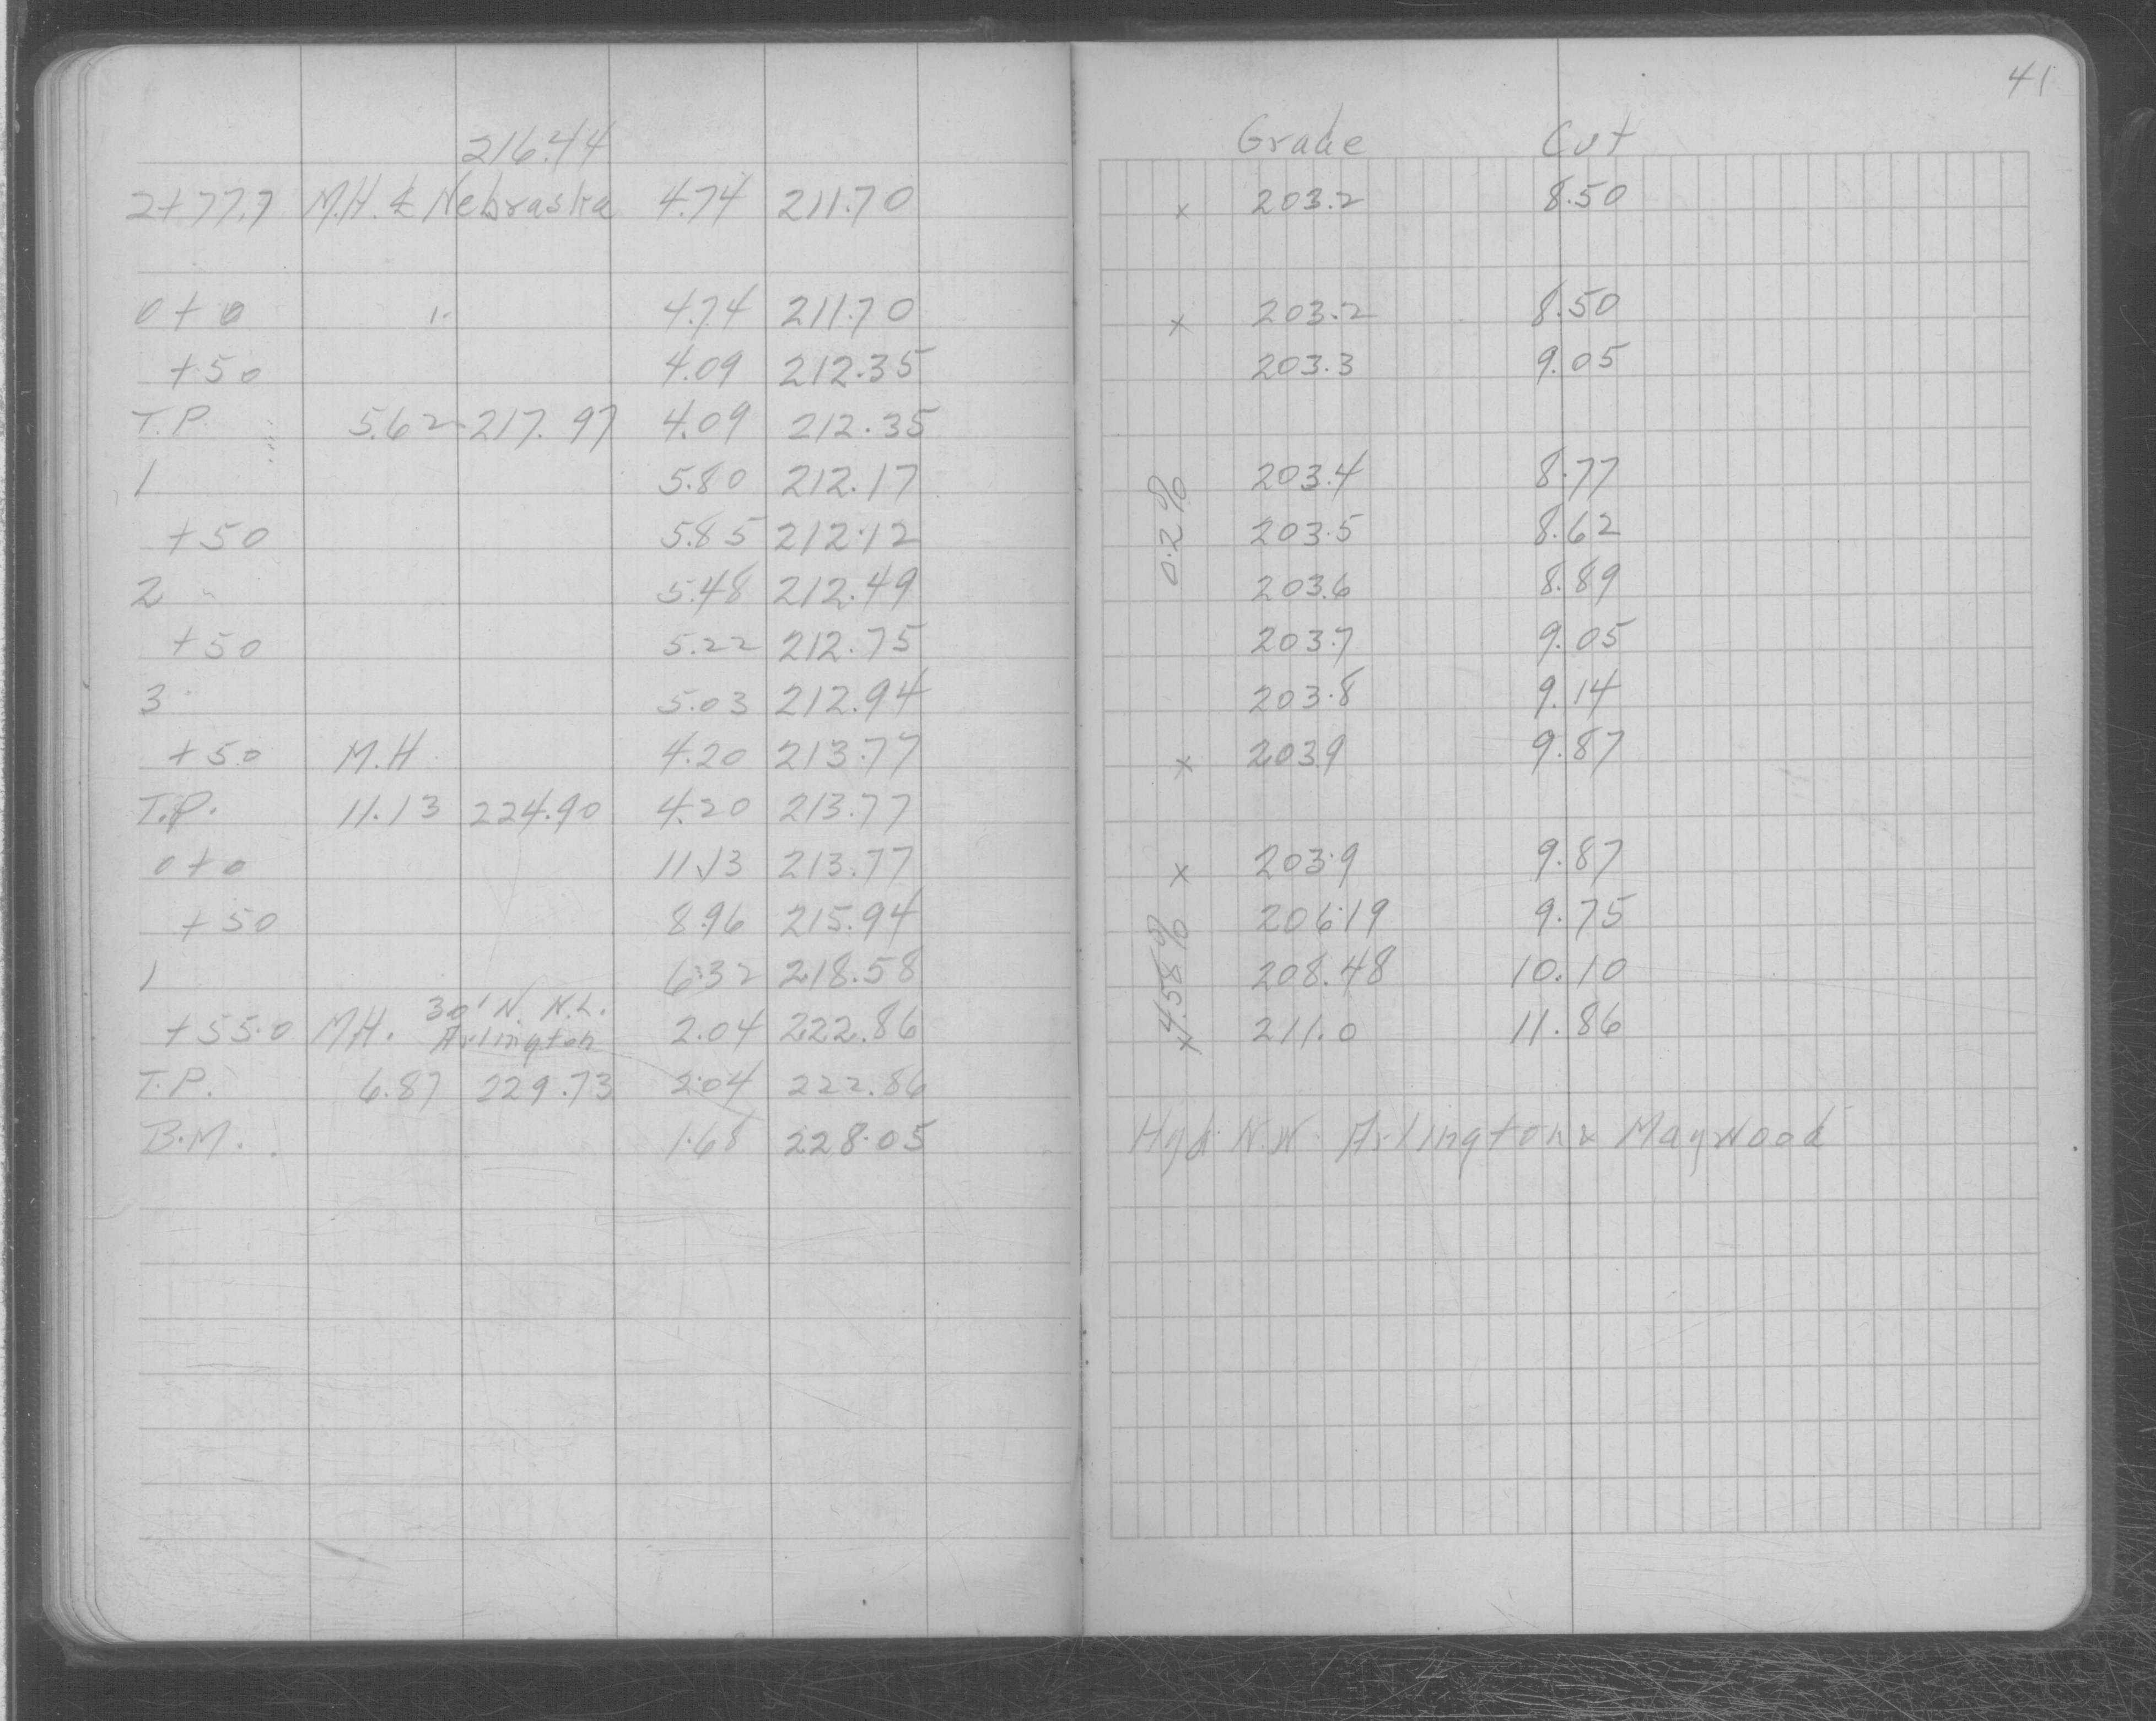 41
216.44 Grade Cut
2+77.7 M.H. & Nebraska 4.74 211.70 x 203.2 8.50
0+0 " 4.74 211.70 x 203.2 8.50
+50 4.09 212.35 203.3 9.05
T.P. 5.62 217.97 4.09 212.35
1 5.80 212.17 203.4 8.77
+50 5.85 212.12 203.5 8.62
0.2%
2 5.48 212.49 203.6 8.89
+50 5.22 212.75 203.7 9.05
3 5.03 212.94 203.8 9.14
+50 M.H. 4.20 213.77 x 203.9 9.87
T.P. 11.13 224.90 4.20 213.77
0+0 11.13 213.77 x 203.9 9.87
+50 8.96 215.94 206.19 9.75
1 6.32 218.58 208.48 10.10
4.58%
30' N. N.L.
+55.0 M.H. Arlington 2.04 222.86 x 211.0 11.86
T.P. 6.87 229.73 2.04 222.86
B.M. 1.68 228.05 Hyd. N.W. Arlington & Maywood